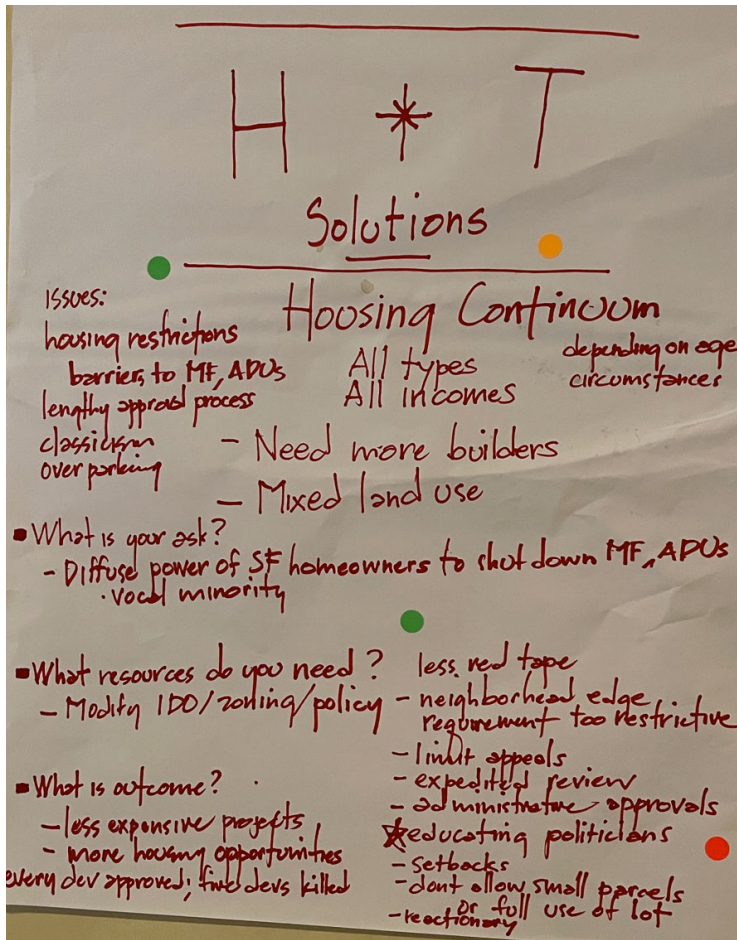 H * T
Solutions
issues:
housing restrictions
barriers to MF, ADUs
lengthy approval process
classicism
over parking
Housing Continuum
All types
All incomes
depending on age
circumstances
- Need more builders
- Mixed land use
▪ What is your ask?
- Diffuse power of SF homeowners to shut down MF, ADUs
· vocal minority
▪ What resources do you need?
- Modify IDO/zoning/policy
less red tape
- neighborhead edge
requirement too restrictive
- limit appeals
- expedited review
- administrative approvals
★ educating politicians
- setbacks
- dont allow small parcels
or full use of lot
- reactionary
▪ What is outcome?
- less expensive projects
- more housing opportunities
every dev approved; five devs killed